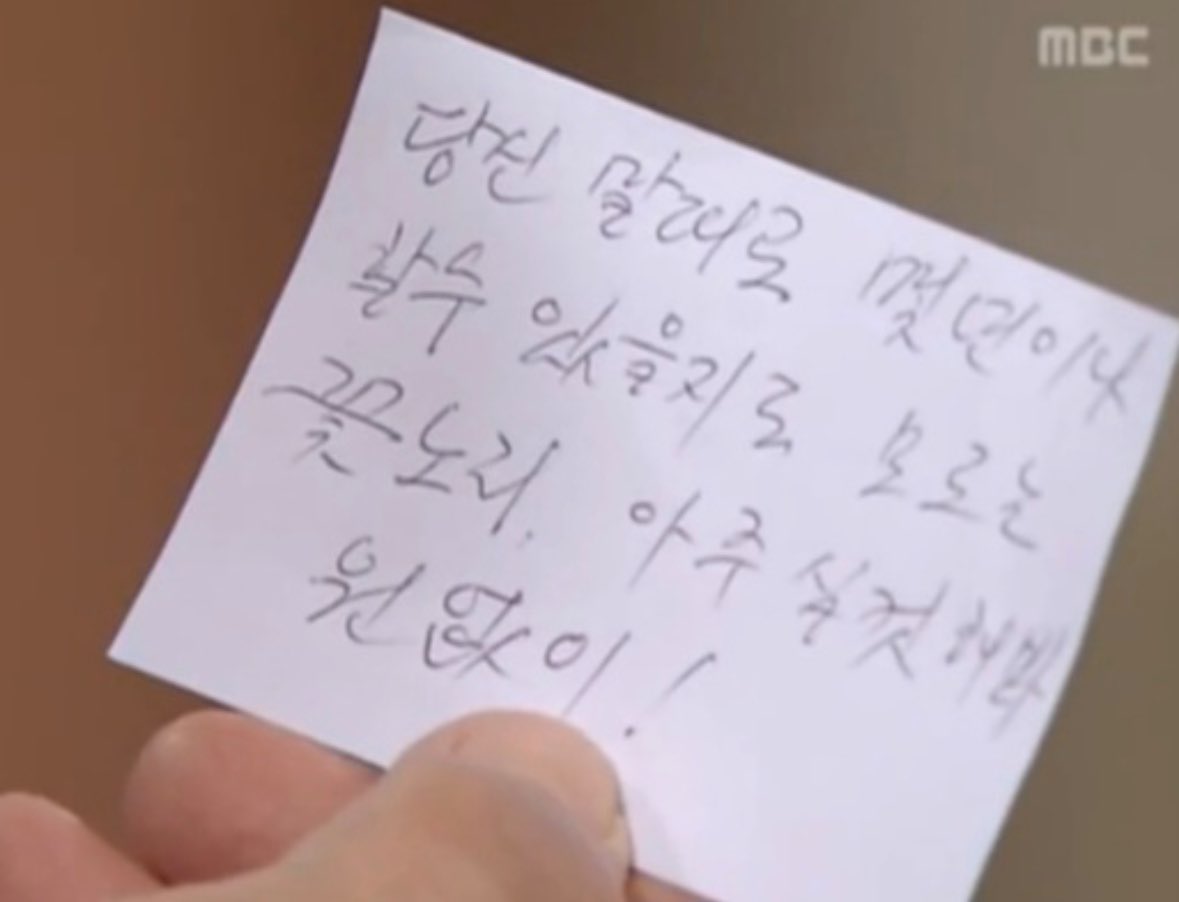 MBC
당신 말대로 몇번이나
할수 있을지도 모르는
꽃놀이. 아주 실컷 해봐
원없이!